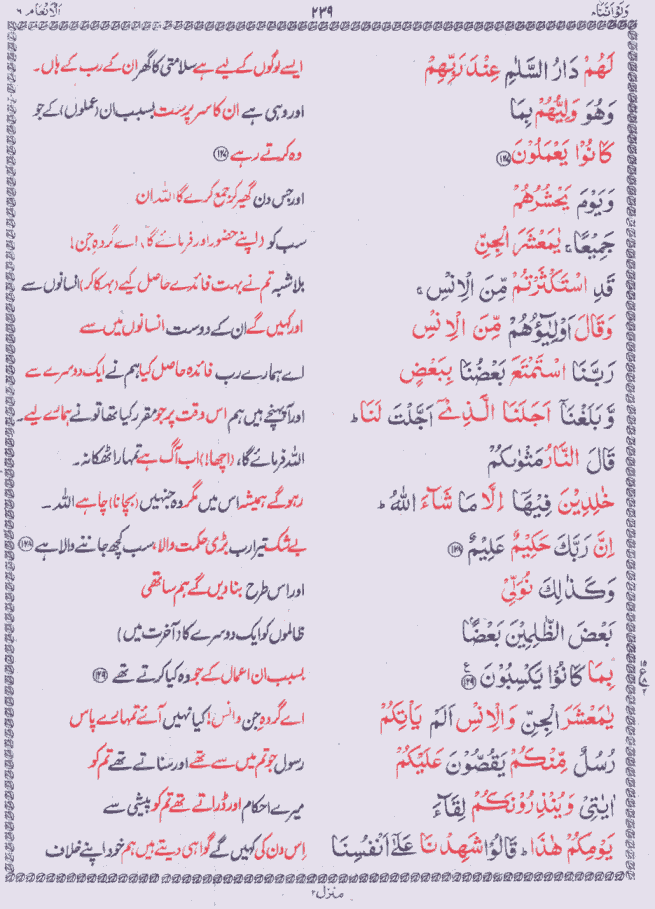 وَلَوْ اَنَّنَا ۸ ۲۳۹ اَلْاَنْعَام ۶
لَهُمْ دَارُ السَّلٰمِ عِنْدَ رَبِّهِمْ ایسے لوگوں کے لیے ہے سلامتی کا گھر ان کے رب کے ہاں۔
وَهُوَ وَلِیُّهُمْ بِمَا اور وہی ہے ان کا سرپرست بسبب ان (عملوں) کے جو
كَانُوْا یَعْمَلُوْنَ ۝۱۲۷ وہ کرتے رہے ۝۱۲۷
وَیَوْمَ یَحْشُرُهُمْ اور جس دن گھیر کر جمع کرے گا اللہ ان
جَمِیْعًا ۚ یٰمَعْشَرَ الْجِنِّ سب کو (اپنے حضور اور فرمائے گا) اے گروہِ جن!
قَدِ اسْتَكْثَرْتُمْ مِّنَ الْاِنْسِ ۚ بلاشبہ تم نے بہت فائدے حاصل کیے (بہکا کر) انسانوں سے
وَقَالَ اَوْلِیٰٓؤُهُمْ مِّنَ الْاِنْسِ اور کہیں گے ان کے دوست انسانوں میں سے
رَبَّنَا اسْتَمْتَعَ بَعْضُنَا بِبَعْضٍ اے ہمارے رب فائدہ حاصل کیا ہم نے ایک دوسرے سے
وَّبَلَغْنَاۤ اَجَلَنَا الَّذِیْۤ اَجَّلْتَ لَنَا ؕ اور آپہنچے ہیں ہم اس وقت پر جو مقرر کیا تھا تو نے ہمارے لیے۔
قَالَ النَّارُ مَثْوٰىكُمْ اللہ فرمائے گا، (اچھا!) اب آگ ہے تمہارا ٹھکانہ۔
خٰلِدِیْنَ فِیْهَاۤ اِلَّا مَا شَآءَ اللّٰهُ ؕ رہو گے ہمیشہ اس میں مگر وہ جنہیں (بچانا) چاہے اللہ۔
اِنَّ رَبَّكَ حَكِیْمٌ عَلِیْمٌ ۝۱۲۸ بے شک تیرا رب بڑی حکمت والا، سب کچھ جاننے والا ہے ۝۱۲۸
وَكَذٰلِكَ نُوَلِّیْ اور اس طرح بنادیں گے ہم ساتھی
بَعْضَ الظّٰلِمِیْنَ بَعْضًۢا ظالموں کو ایک دوسرے کا (آخرت میں)
بِمَا كَانُوْا یَكْسِبُوْنَ ۝۱۲۹ بسبب ان اعمال کے جو وہ کیا کرتے تھے ۝۱۲۹
یٰمَعْشَرَ الْجِنِّ وَالْاِنْسِ اَلَمْ یَاْتِكُمْ اے گروہِ جن و انس! کیا نہیں آئے تمہارے پاس
رُسُلٌ مِّنْكُمْ یَقُصُّوْنَ عَلَیْكُمْ رسول جو تم میں سے تھے اور سناتے تھے تم کو
اٰیٰتِیْ وَیُنْذِرُوْنَكُمْ لِقَآءَ میرے احکام اور ڈراتے تھے تم کو پیشی سے
یَوْمِكُمْ هٰذَا ؕ قَالُوْا شَهِدْنَا عَلٰۤی اَنْفُسِنَا اس دن کی کہیں گے گواہی دیتے ہیں ہم خود اپنے خلاف
منزل ۲